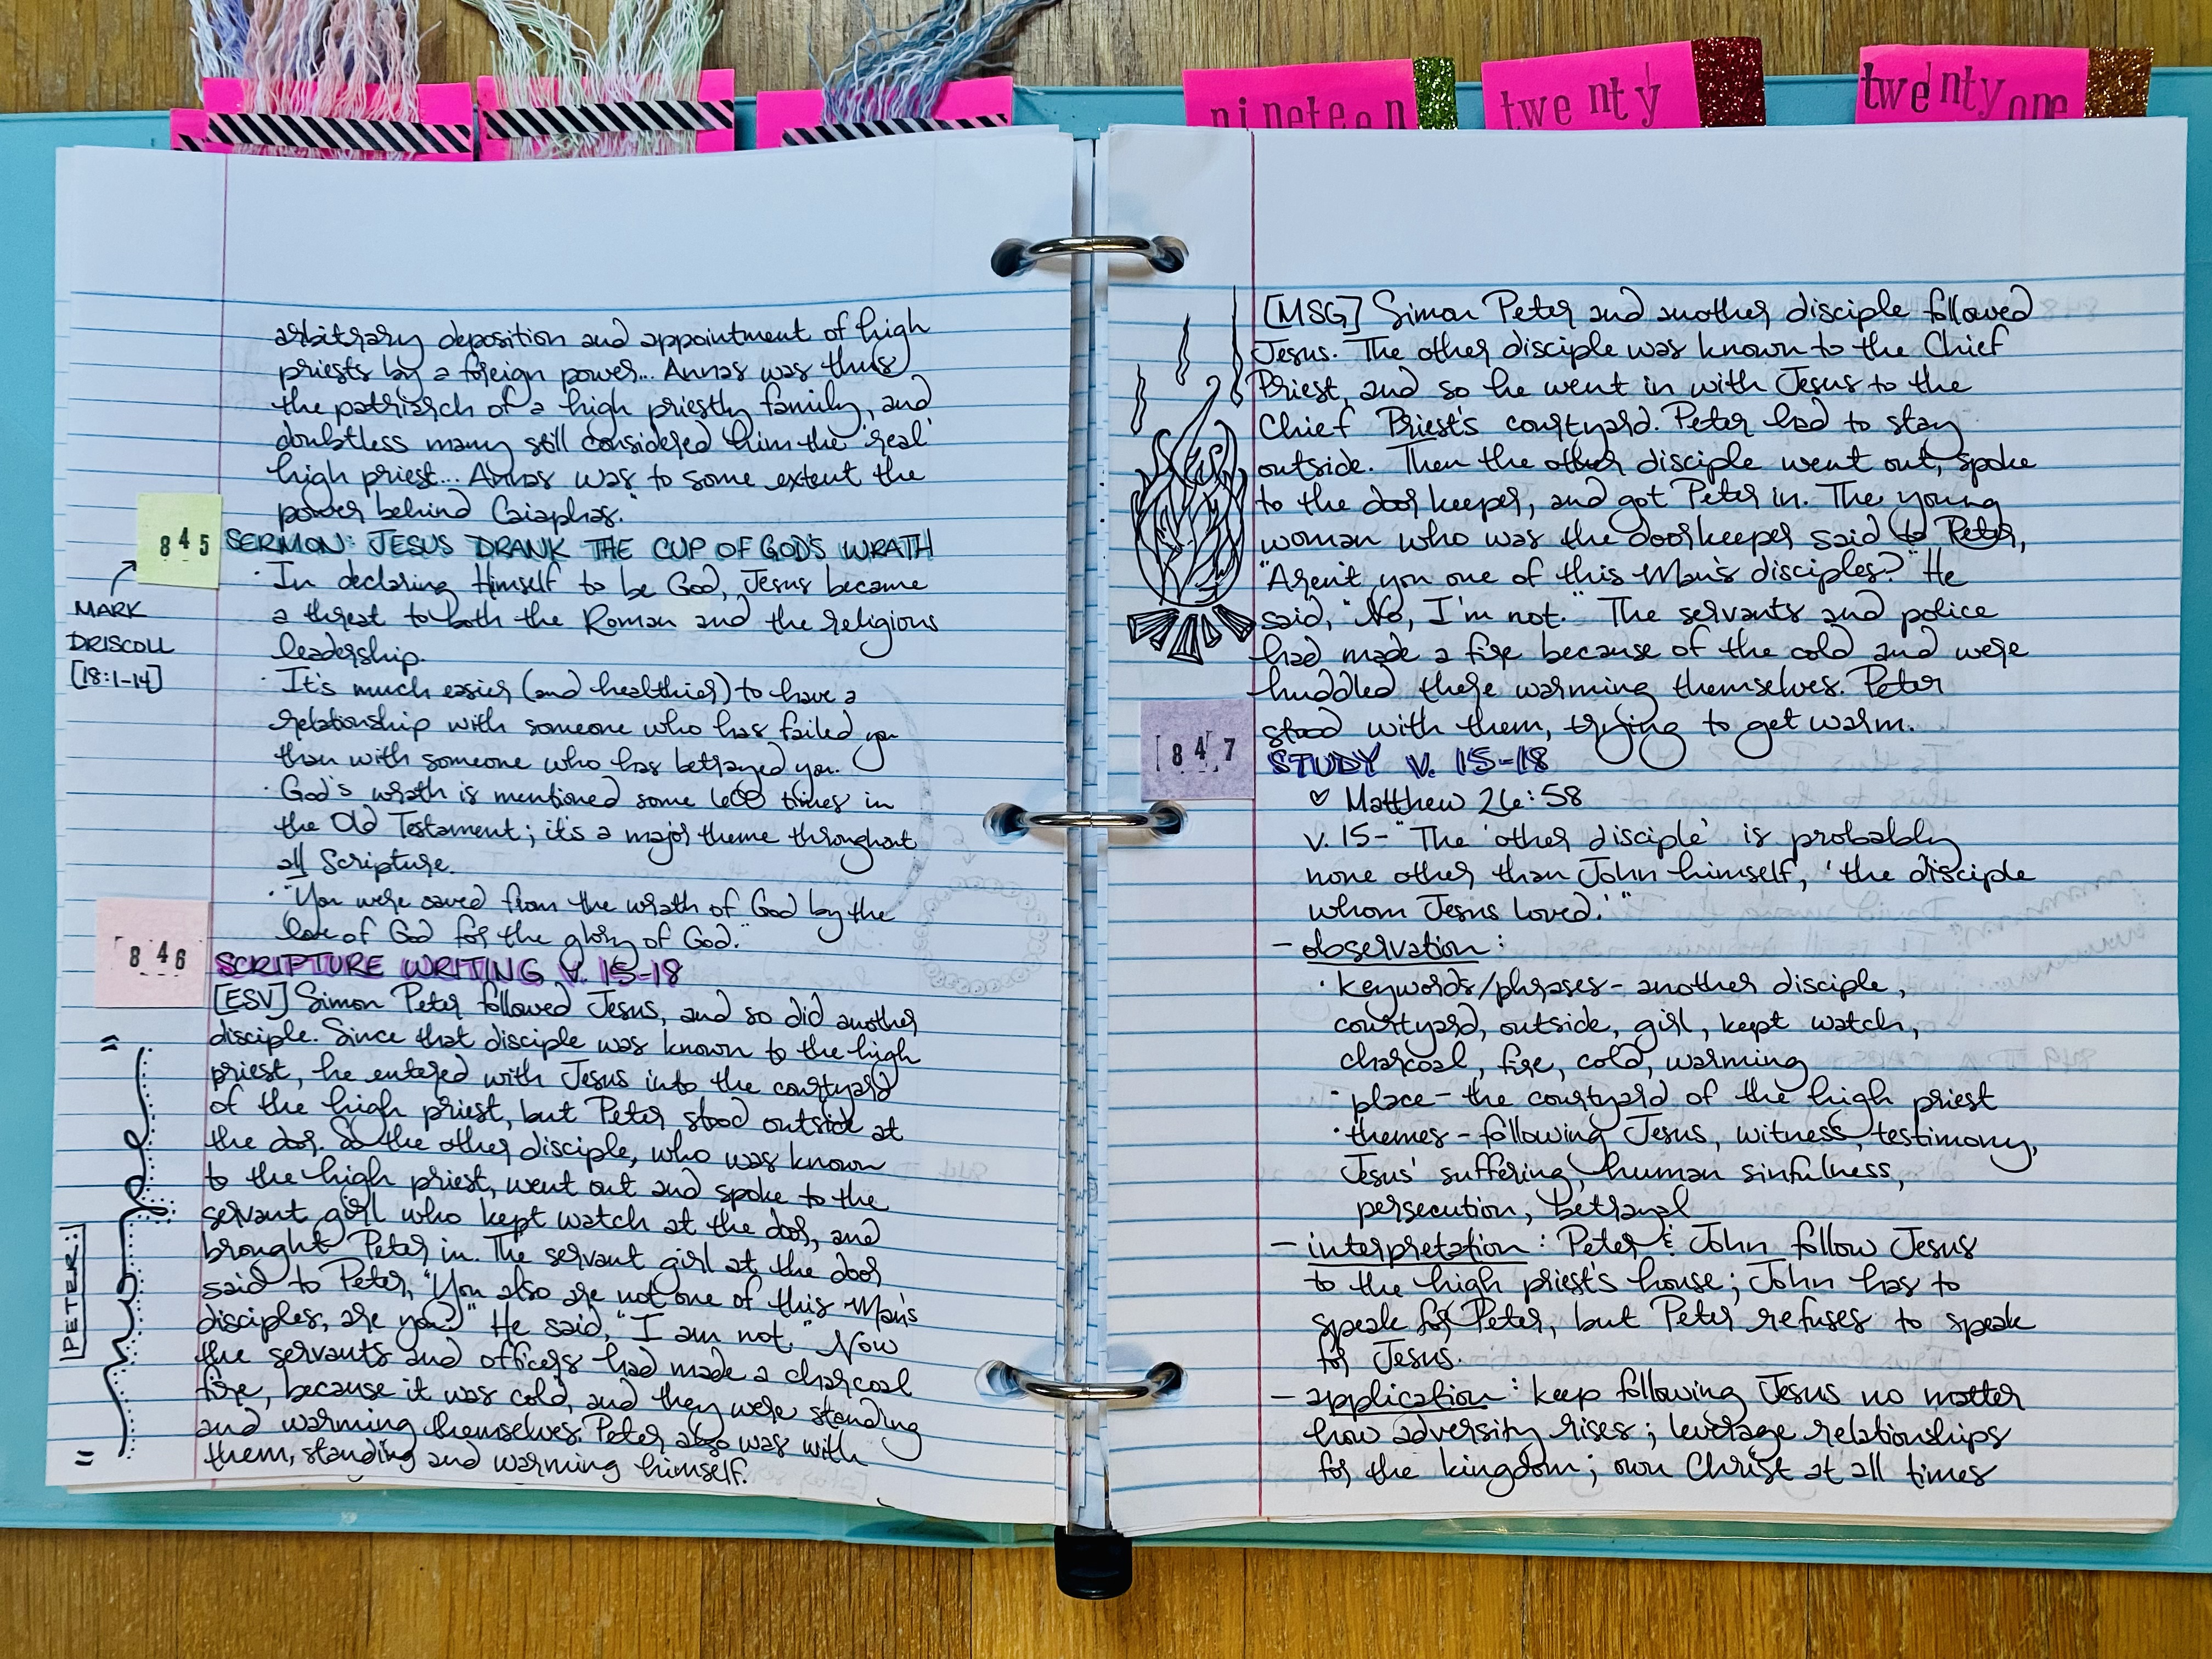 nineteen
twenty
twenty one
arbitrary deposition and appointment of high
priests by a foreign power... Annas was thus
the patriarch of a high priestly family, and
doubtless many still considered him the 'real'
high priest... Annas was to some extent the
power behind Caiaphas."
845
SERMON: JESUS DRANK THE CUP OF GOD'S WRATH
MARK
DRISCOLL
[18:1-14]
· In declaring Himself to be God, Jesus became
a threat to both the Roman and the religious
leadership.
· It's much easier (and healthier) to have a
relationship with someone who has failed you
than with someone who has betrayed you.
· God's wrath is mentioned some 600 times in
the Old Testament; it's a major theme throughout
all Scripture.
· "You were saved from the wrath of God by the
love of God for the glory of God."
846
SCRIPTURE WRITING V. 15-18
[ESV] Simon Peter followed Jesus, and so did another
disciple. Since that disciple was known to the high
priest, he entered with Jesus into the courtyard
of the high priest, but Peter stood outside at
the door. So the other disciple, who was known
to the high priest, went out and spoke to the
servant girl who kept watch at the door, and
brought Peter in. The servant girl at the door
said to Peter, "You also are not one of this Man's
disciples, are you?" He said, "I am not." Now
the servants and officers had made a charcoal
fire, because it was cold, and they were standing
and warming themselves. Peter also was with
them, standing and warming himself.
PETER:
[MSG] Simon Peter and another disciple followed
Jesus. The other disciple was known to the Chief
Priest, and so he went in with Jesus to the
Chief Priest's courtyard. Peter had to stay
outside. Then the other disciple went out, spoke
to the doorkeeper, and got Peter in. The young
woman who was the doorkeeper said to Peter,
"Aren't you one of this Man's disciples?" He
said, "No, I'm not." The servants and police
had made a fire because of the cold and were
huddled there warming themselves. Peter
stood with them, trying to get warm.
[847]
STUDY V. 15-18
♡ Matthew 26:58
v. 15- "The 'other disciple' is probably
none other than John himself, 'the disciple
whom Jesus loved.'"
- observation:
· keywords/phrases - another disciple,
courtyard, outside, girl, kept watch,
charcoal, fire, cold, warming
· place - the courtyard of the high priest
· themes - following Jesus, witness, testimony,
Jesus' suffering, human sinfulness,
persecution, betrayal
- interpretation: Peter & John follow Jesus
to the high priest's house; John has to
speak for Peter, but Peter refuses to speak
for Jesus.
- application: keep following Jesus no matter
how adversity rises; leverage relationships
for the kingdom; own Christ at all times